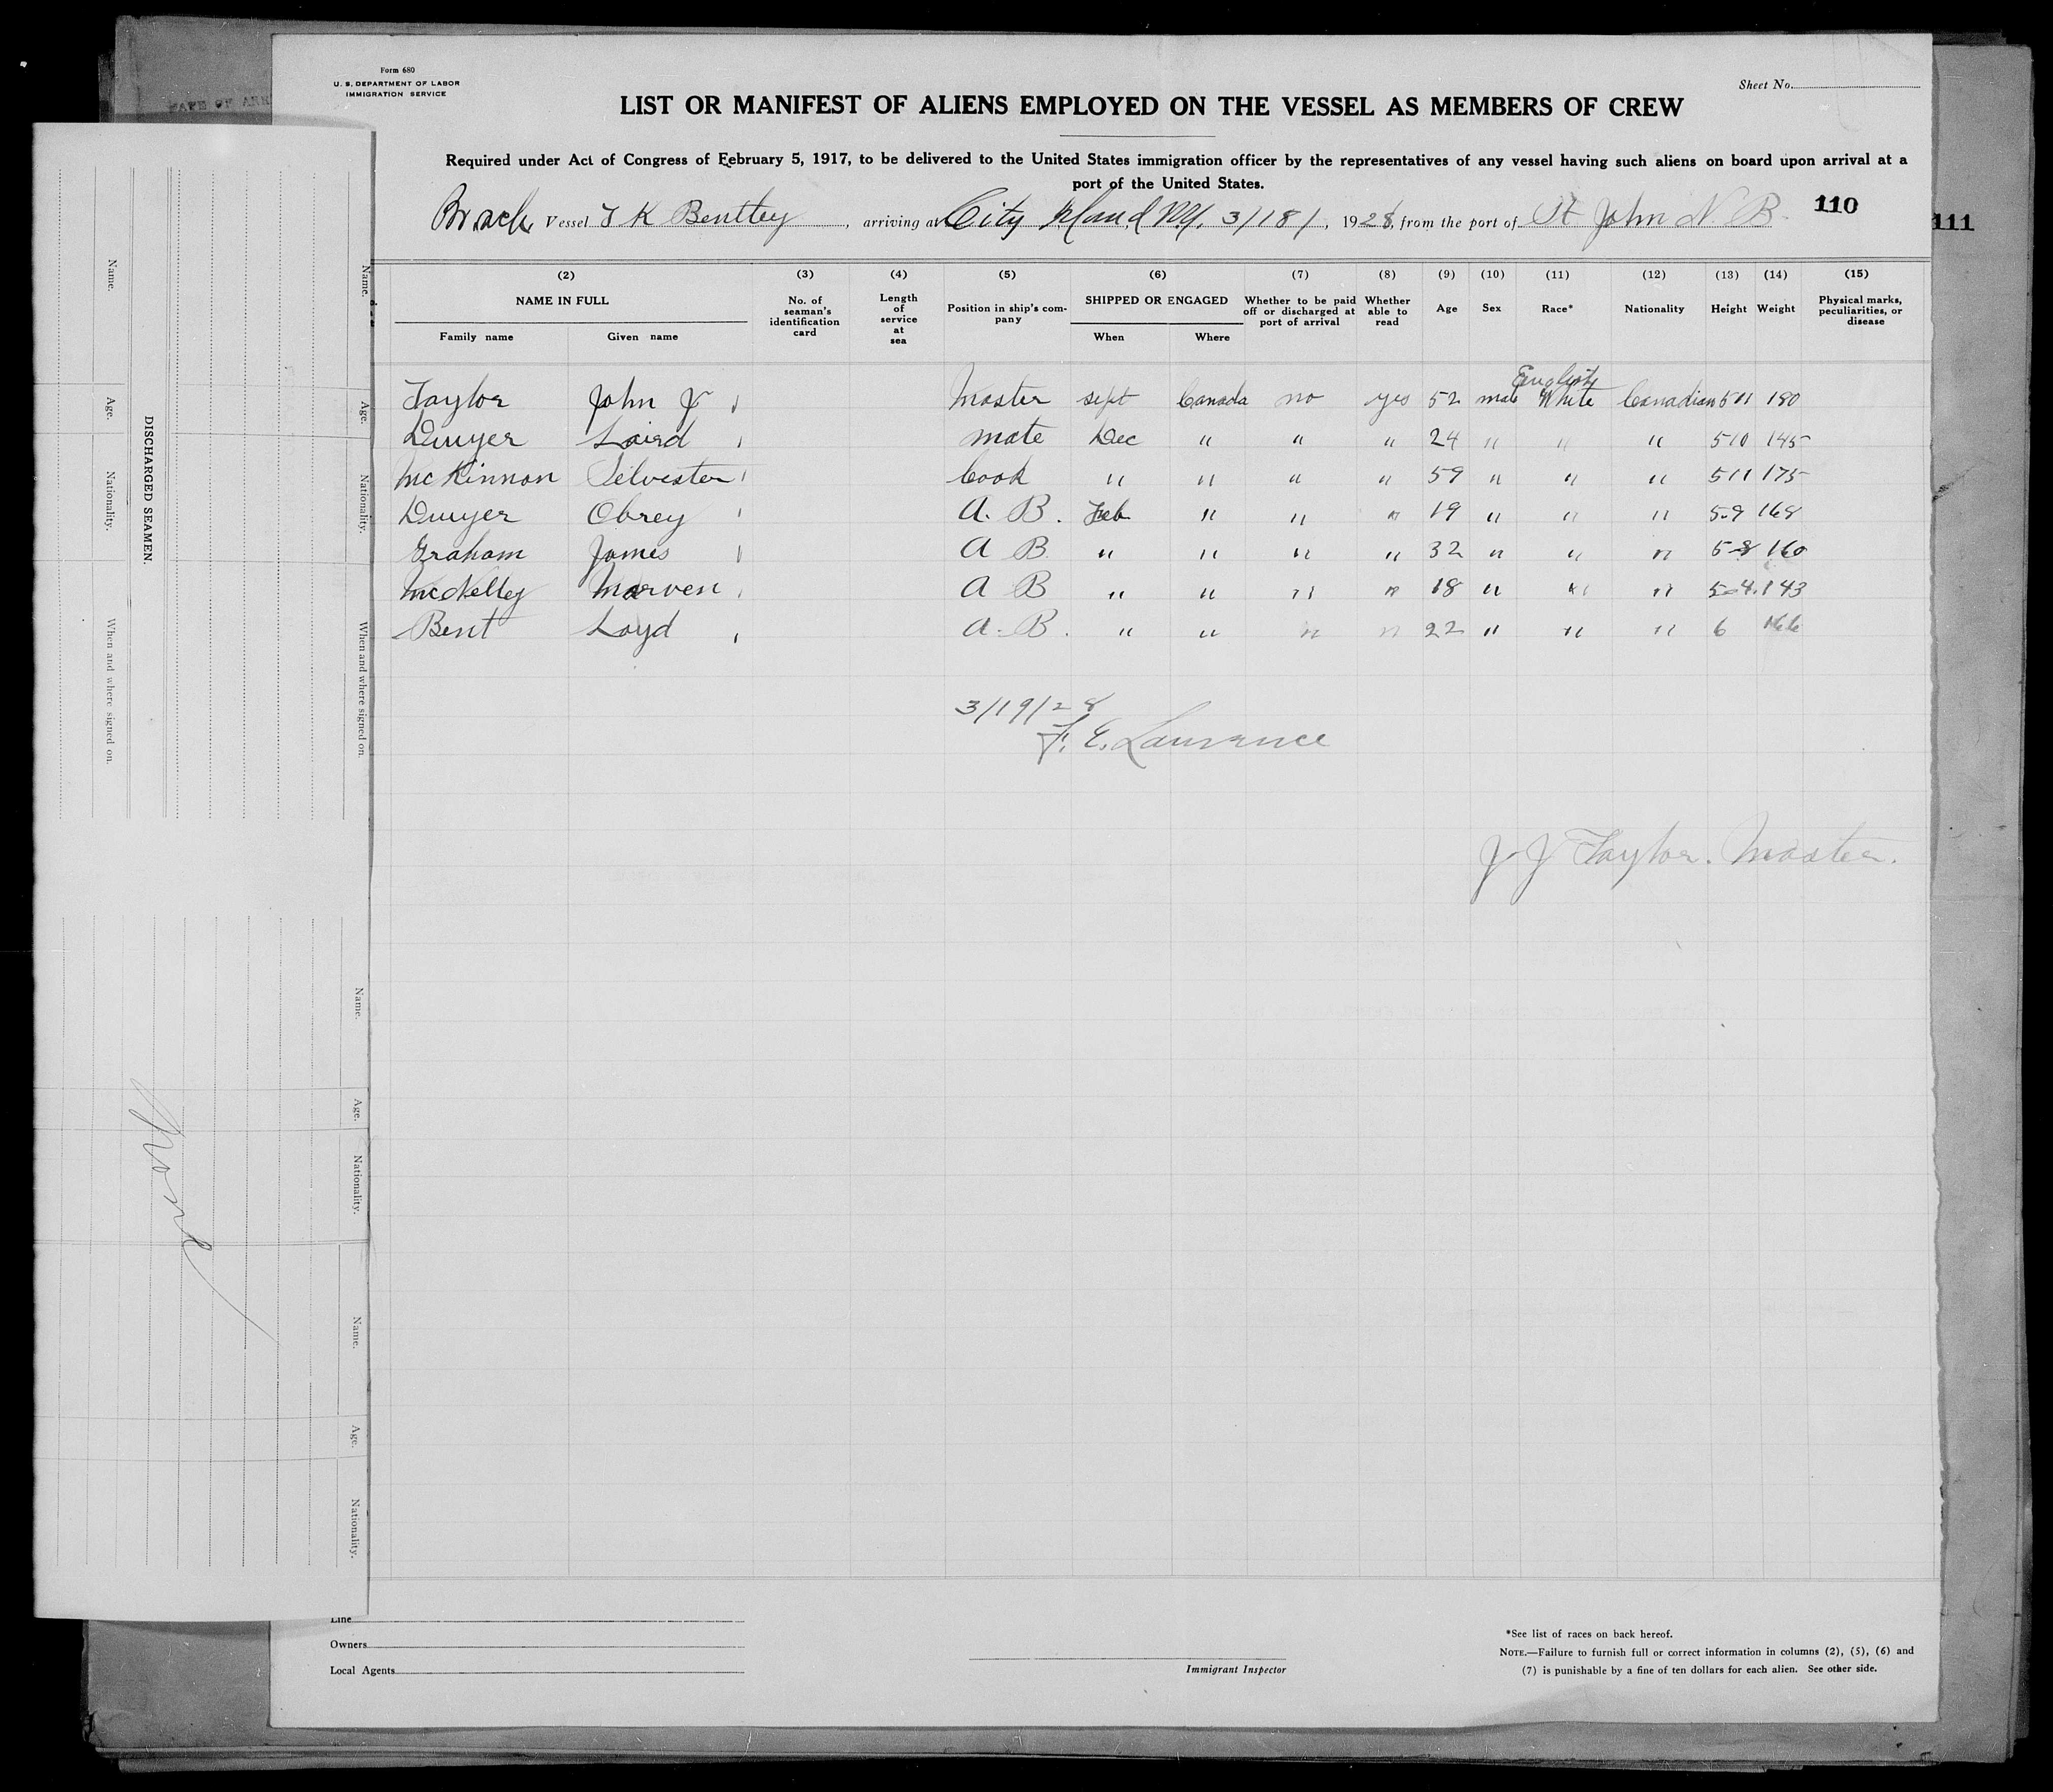 Form 680
U. S. DEPARTMENT OF LABOR
IMMIGRATION SERVICE
Sheet No.
LIST OR MANIFEST OF ALIENS EMPLOYED ON THE VESSEL AS MEMBERS OF CREW
Required under Act of Congress of February 5, 1917, to be delivered to the United States immigration officer by the representatives of any vessel having such aliens on board upon arrival at a
port of the United States.
Vessel T K Bentley, arriving at City Island N.Y. 3/18/, 1928, from the port of St John N. B. 110
111
(2) (3) (4) (5) (6) (7) (8) (9) (10) (11) (12) (13) (14) (15)
NAME IN FULL
Family name Given name
No. of seaman's identification card
Length of service at sea
Position in ship's company
SHIPPED OR ENGAGED
When Where
Whether to be paid off or discharged at port of arrival
Whether able to read
Age Sex Race* Nationality Height Weight
Physical marks, peculiarities, or disease
English
Taylor John J Master sept Canada no yes 52 male White Canadian 5 11 180
Dwyer Laird mate Dec " " " 24 " " " 5 10 145
McKinnon Silvester Cook " " " " 59 " " " 5 11 175
Dwyer Obrey A. B. Feb " " " 19 " " " 5-9 168
Graham James A B " " " " 32 " " " 5-8 160
McKelley Marven A B " " " " 18 " " " 5-4 143
Bent Loyd A. B. " " " " 22 " " " 6 166
3/19/28
F. E. Lawrence
J J Taylor. Master.
Line
Owners
Local Agents
Immigrant Inspector
*See list of races on back hereof.
NOTE.—Failure to furnish full or correct information in columns (2), (5), (6) and
(7) is punishable by a fine of ten dollars for each alien. See other side.
DISCHARGED SEAMEN.
Name. Age. Nationality. When and where signed on.
Name. Age. Nationality. When and where signed on.
Name. Age. Nationality.
Name. Age. Nationality.